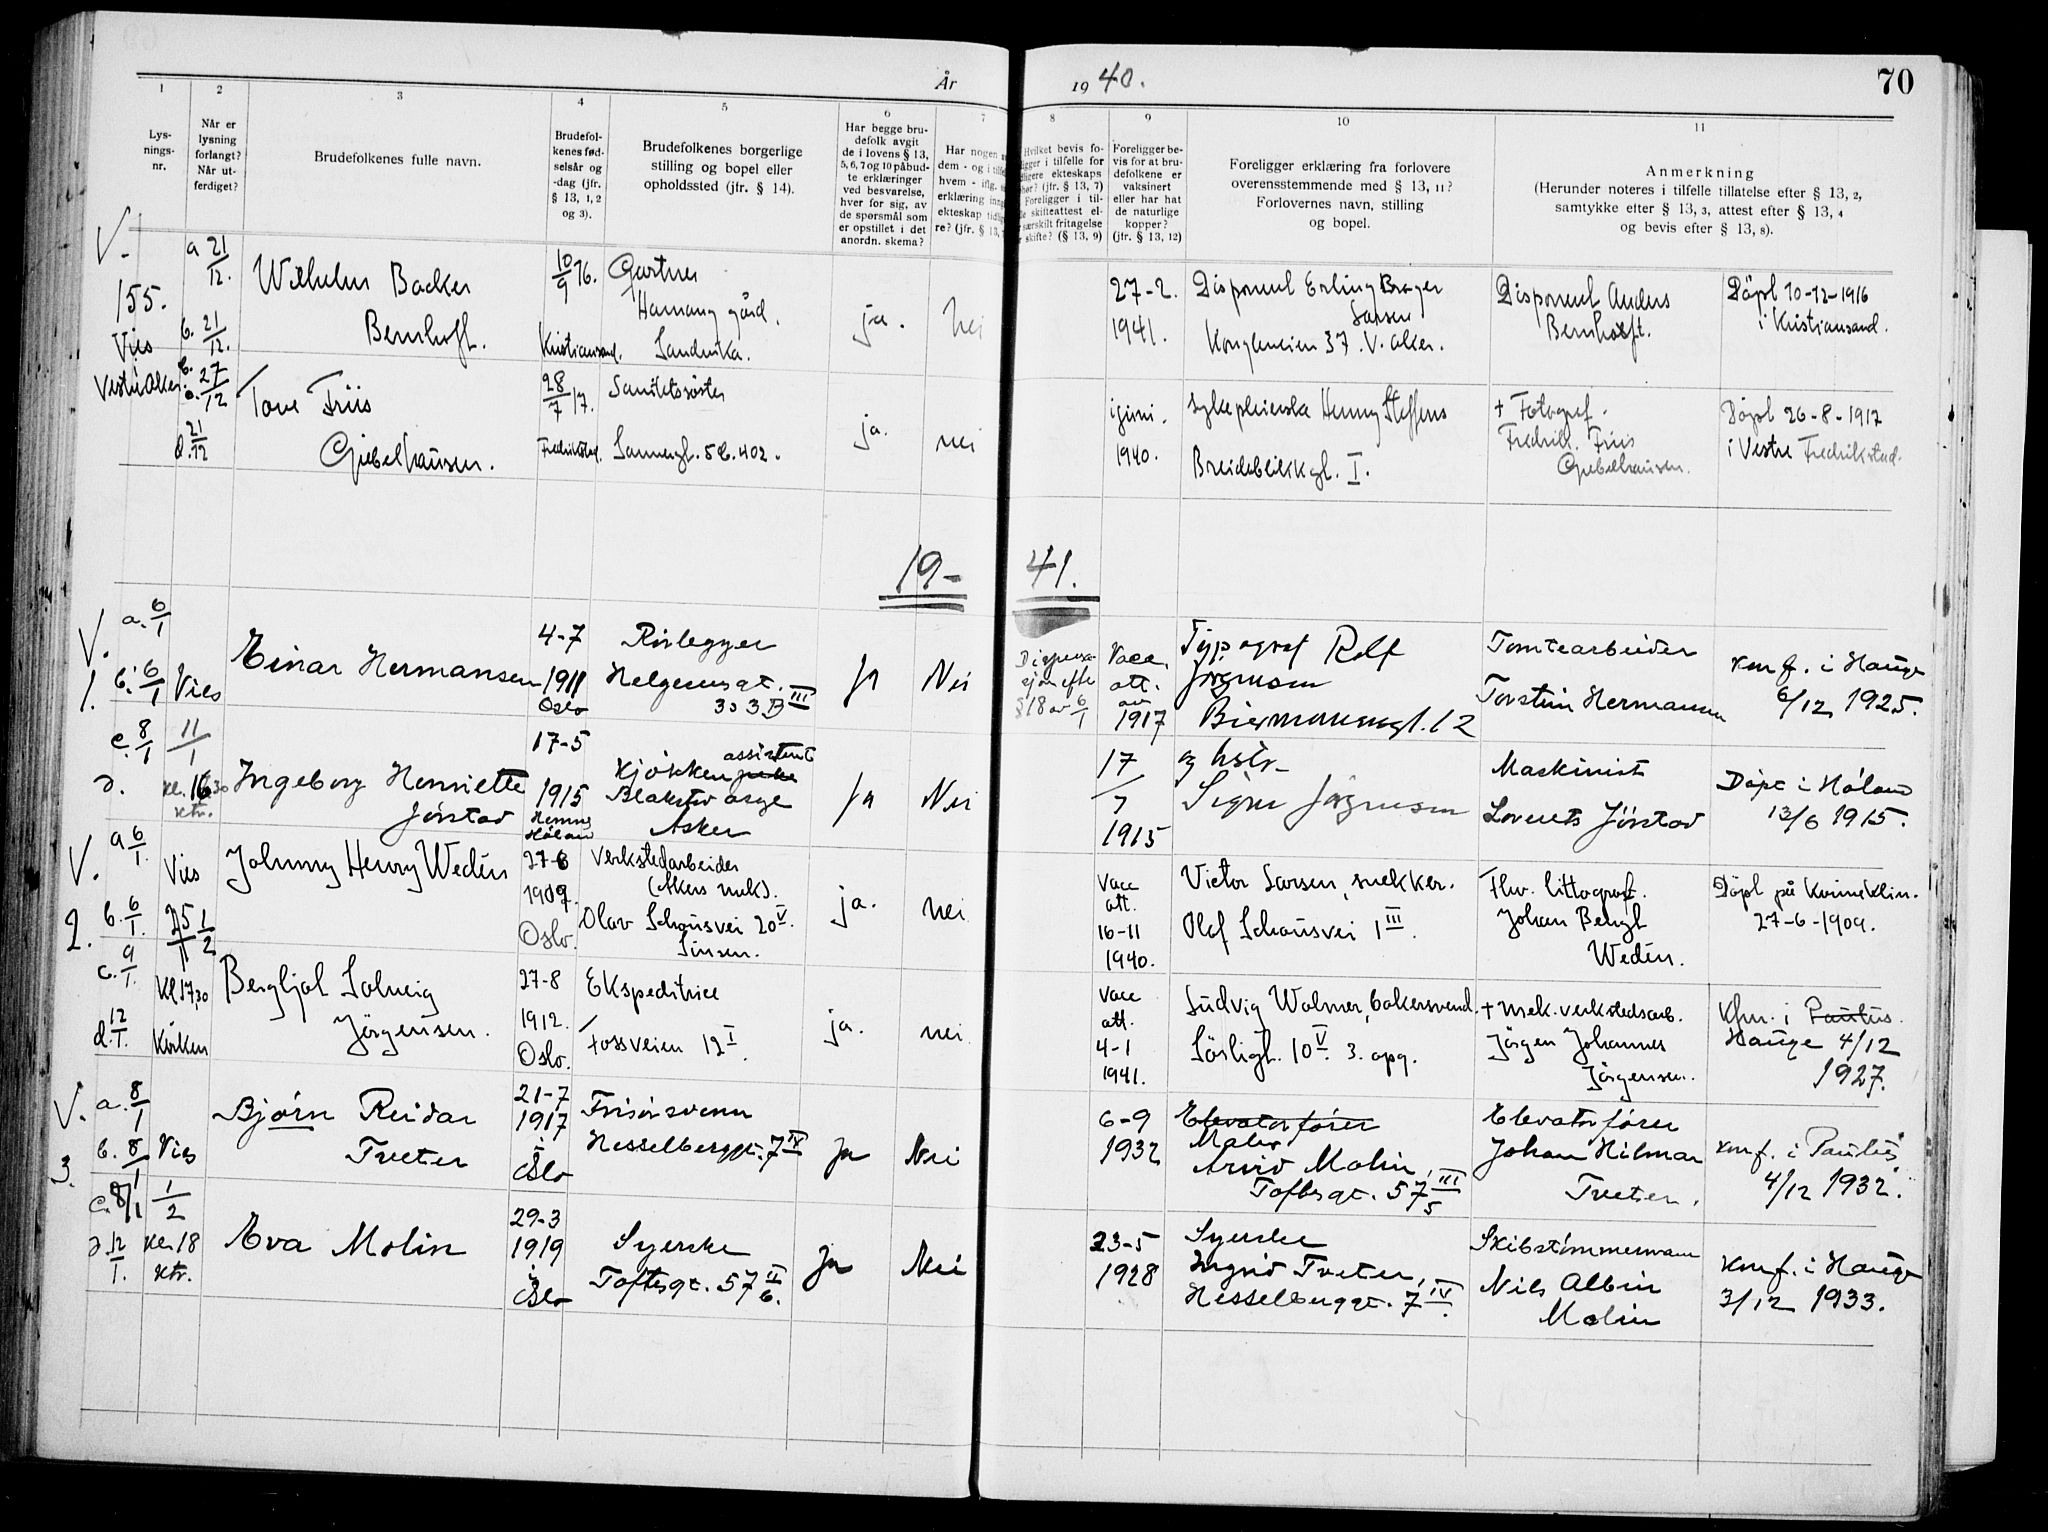 År
19 40.
70
1
2
3
4
5
6
7
8
9
10
11
Lys-
nings-
nr.
Når er
lysning
forlangt?
Når ut-
ferdiget?
Brudefolkenes fulle navn.
Brudefol-
kenes fød-
selsår og
-dag (jfr.
§ 13, 1, 2
og 3).
Brudefolkenes borgerlige
stilling og bopel eller
opholdssted (jfr. § 14).
Har begge bru-
defolk avgit
de i lovens § 13,
5, 6, 7 og 10 påbud-
te erklæringer
ved besvarelse,
hver for sig, av
de spørsmål som
er opstillet i det
anordn. skema?
Har nogen
dem - og i
hvem - iflg.
erklæring
ekteskap
re? (jfr. § 13,
Hvilket bevis fo-
ligger i tilfelle for
ekteskaps
(jfr. § 13, 7)
Foreligger i til-
skifteattest el-
særskilt fritagelse
skifte? (§ 13, 9)
Foreligger be-
vis for at bru-
defolkene er
vaksinert
eller har hat
de naturlige
kopper?
(jfr. § 13, 12)
Foreligger erklæring fra forlovere
overensstemmende med § 13, 11?
Forlovernes navn, stilling
og bopel.
Anmerkning
(Herunder noteres i tilfelle tillatelse efter § 13, 2,
samtykke efter § 13, 3, attest efter § 13, 4
og bevis efter § 13, 8).
V.
155.
Vies
Vestre Aker.
a 21/12.
b. 21/12.
27/12
d. 21/12
Wilhelm Backer
Bernhoft.
10/9 16.
Kristiansand.
Gartner
Hamang gård.
Sandvika.
ja.
nei
27-2.
1941.
Disponent Erling Brager
Larsen
Kongleveien 37. V. Aker.
Disponent Anders
Bernhoft.
Döpt 10-12-1916
i Kristiansand.
Tove Friis
Giebelhausen.
28/7 17.
Fredrikstad.
Sanitetssøster
Sannergt. 5 b. 402.
ja.
nei
i juni.
1940.
sykepleierske Henny Steffens
Breidablikkgt. I.
+ Fotograf.
Fredrik. Friis
Giebelhausen.
Döpt 26-8-1917
i Vestre Fredrikstad.
19-41.
V.
1.
a. 6/1
b. 6/1 Vies
c. 8/1
11/1
d.
kl. 16 30
ktr.
Einar Hermansen
4-7
1911
Oslo
Rörlegger
Helgesensgt.
33 B III
Ja
Nei
Vacc.
att.
av
1917
Typograf Rolf
Jörgensen
Biermannsgt. 12
Tomtearbeider
Torstein Hermansen
Konf. i Hauge
6/12 1925.
Ingeborg Henriette
Jörstad
17-5
1915
Hemnes
Höland
assistent
Kjökken
Blakstad asyl
Asker
Ja
Nei
17/7
1915
og hstr.
Signe Jörgensen
Maskinist
Lorents Jörstad
Döpt i Höland
13/6 1915.
V.
2.
a 6/1.
b. 6/1.
c. 9/1.
d. 12/1.
Vies
25/1 1/2
Kl 17,30
Kirken
Johnny Henry Wedén
27-6
1909.
Oslo.
Verkstedarbeider
(Akers mek).
Olav Schousvei 20 V.
Sinsen.
ja.
nei
Vacc
att.
16-11
1940.
Victor Larsen, snekker.
Olaf Schousvei 1 III.
Fhv. littograf.
Johan Bengt
Wedén.
Döpt på Kvineklin.
27-6-1909.
Bergljot Solveig
Jörgensen.
27-8
1912.
Oslo.
Ekspeditrice
Fossveien 12 I.
ja.
nei
Vacc
att.
4-1
1941.
Ludvig Wolmer, bakersvend.
Sörligt. 10 V. 3. opg.
+ mek. verkstedsarb.
Jörgen Johannes
Jörgensen.
Kfm. i Paulus.
Hauge 4/12
1927.
V.
3.
a. 8/1
b. 8/1 Vies
c. 8/1
1/2
d 12/1.
Kl. 18
ktr.
Björn Reidar
Tveter
21-7
1917
i
Oslo
Frisörsvenn
Hesselberggt. 7 IV
Ja
Nei
6-9
1932
Elevatorförer
Maler
Arvid Molin,
Toftesgt. 57 III 5
Elevatorförer
Johan Hilmar
Tveter.
Konf. i Paulus
4/12 1932.
Eva Molin
29-3
1919
i
Oslo
Syerske
Toftesgt. 57 II 6.
Ja
Nei
23-5
1928
Syerske
Ingrid Tveter,
Hesselberggt. 7 IV.
Skibstömmermann
Nils Albin
Molin
Konf. i Hauge
3/12 1933.